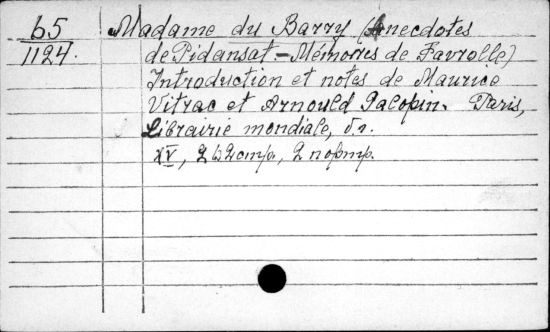 65
1124.
Madame du Barry (Anecdotes
de Pidansat - Mémoires de Favrolle)
Introduction et notes de Maurice
Vitrac et Arnould Galopin. Paris,
Librairie mondiale, б.г.
XV, 262 стр., 2 портр.